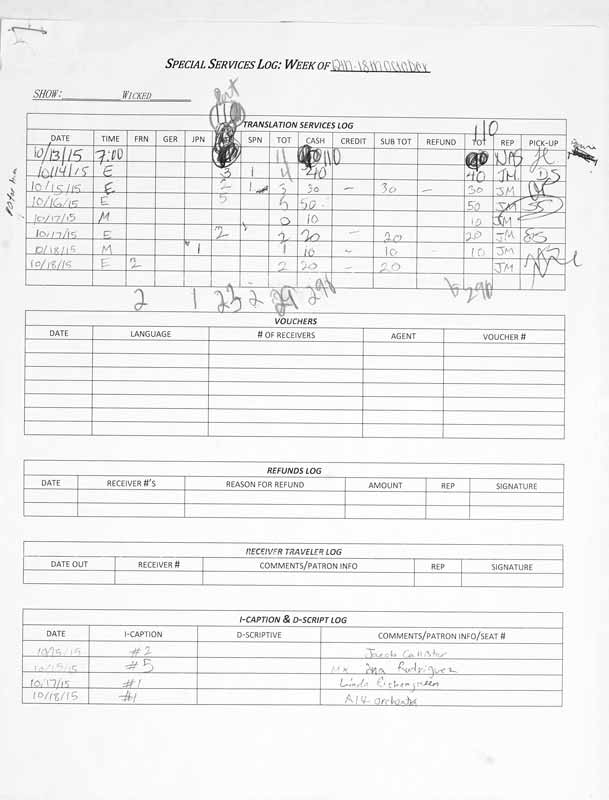 SPECIAL SERVICES LOG: WEEK OF 12th-18th October
SHOW: WICKED
Port
110
TRANSLATION SERVICES LOG
DATE TIME FRN GER JPN SPN TOT CASH CREDIT SUB TOT REFUND TOT REP PICK-UP
10/13/15 7:00 11 110 NAS
10/14/15 E 3 1 4 40 40 JM DS
10/15/15 E 2 1 3 30 – 30 – 30 JM
10/16/15 E 5 5 50 50 JM
10/17/15 M 0 10 10 JM
10/17/15 E 2 2 20 – 20 20 JM
10/18/15 M 1 1 10 – 10 – 10 JM
10/18/15 E 2 2 20 – 20 JM
2 1 23 2 29 290 290
VOUCHERS
DATE LANGUAGE # OF RECEIVERS AGENT VOUCHER #
REFUNDS LOG
DATE RECEIVER #'S REASON FOR REFUND AMOUNT REP SIGNATURE
RECEIVER TRAVELER LOG
DATE OUT RECEIVER # COMMENTS/PATRON INFO REP SIGNATURE
I-CAPTION & D-SCRIPT LOG
DATE I-CAPTION D-SCRIPTIVE COMMENTS/PATRON INFO/SEAT #
10/15/15 #2 Jacob Callister
10/15/15 #5 Ana Rodriguez
10/17/15 #1 Linda
10/18/15 #1 A14 orchestra